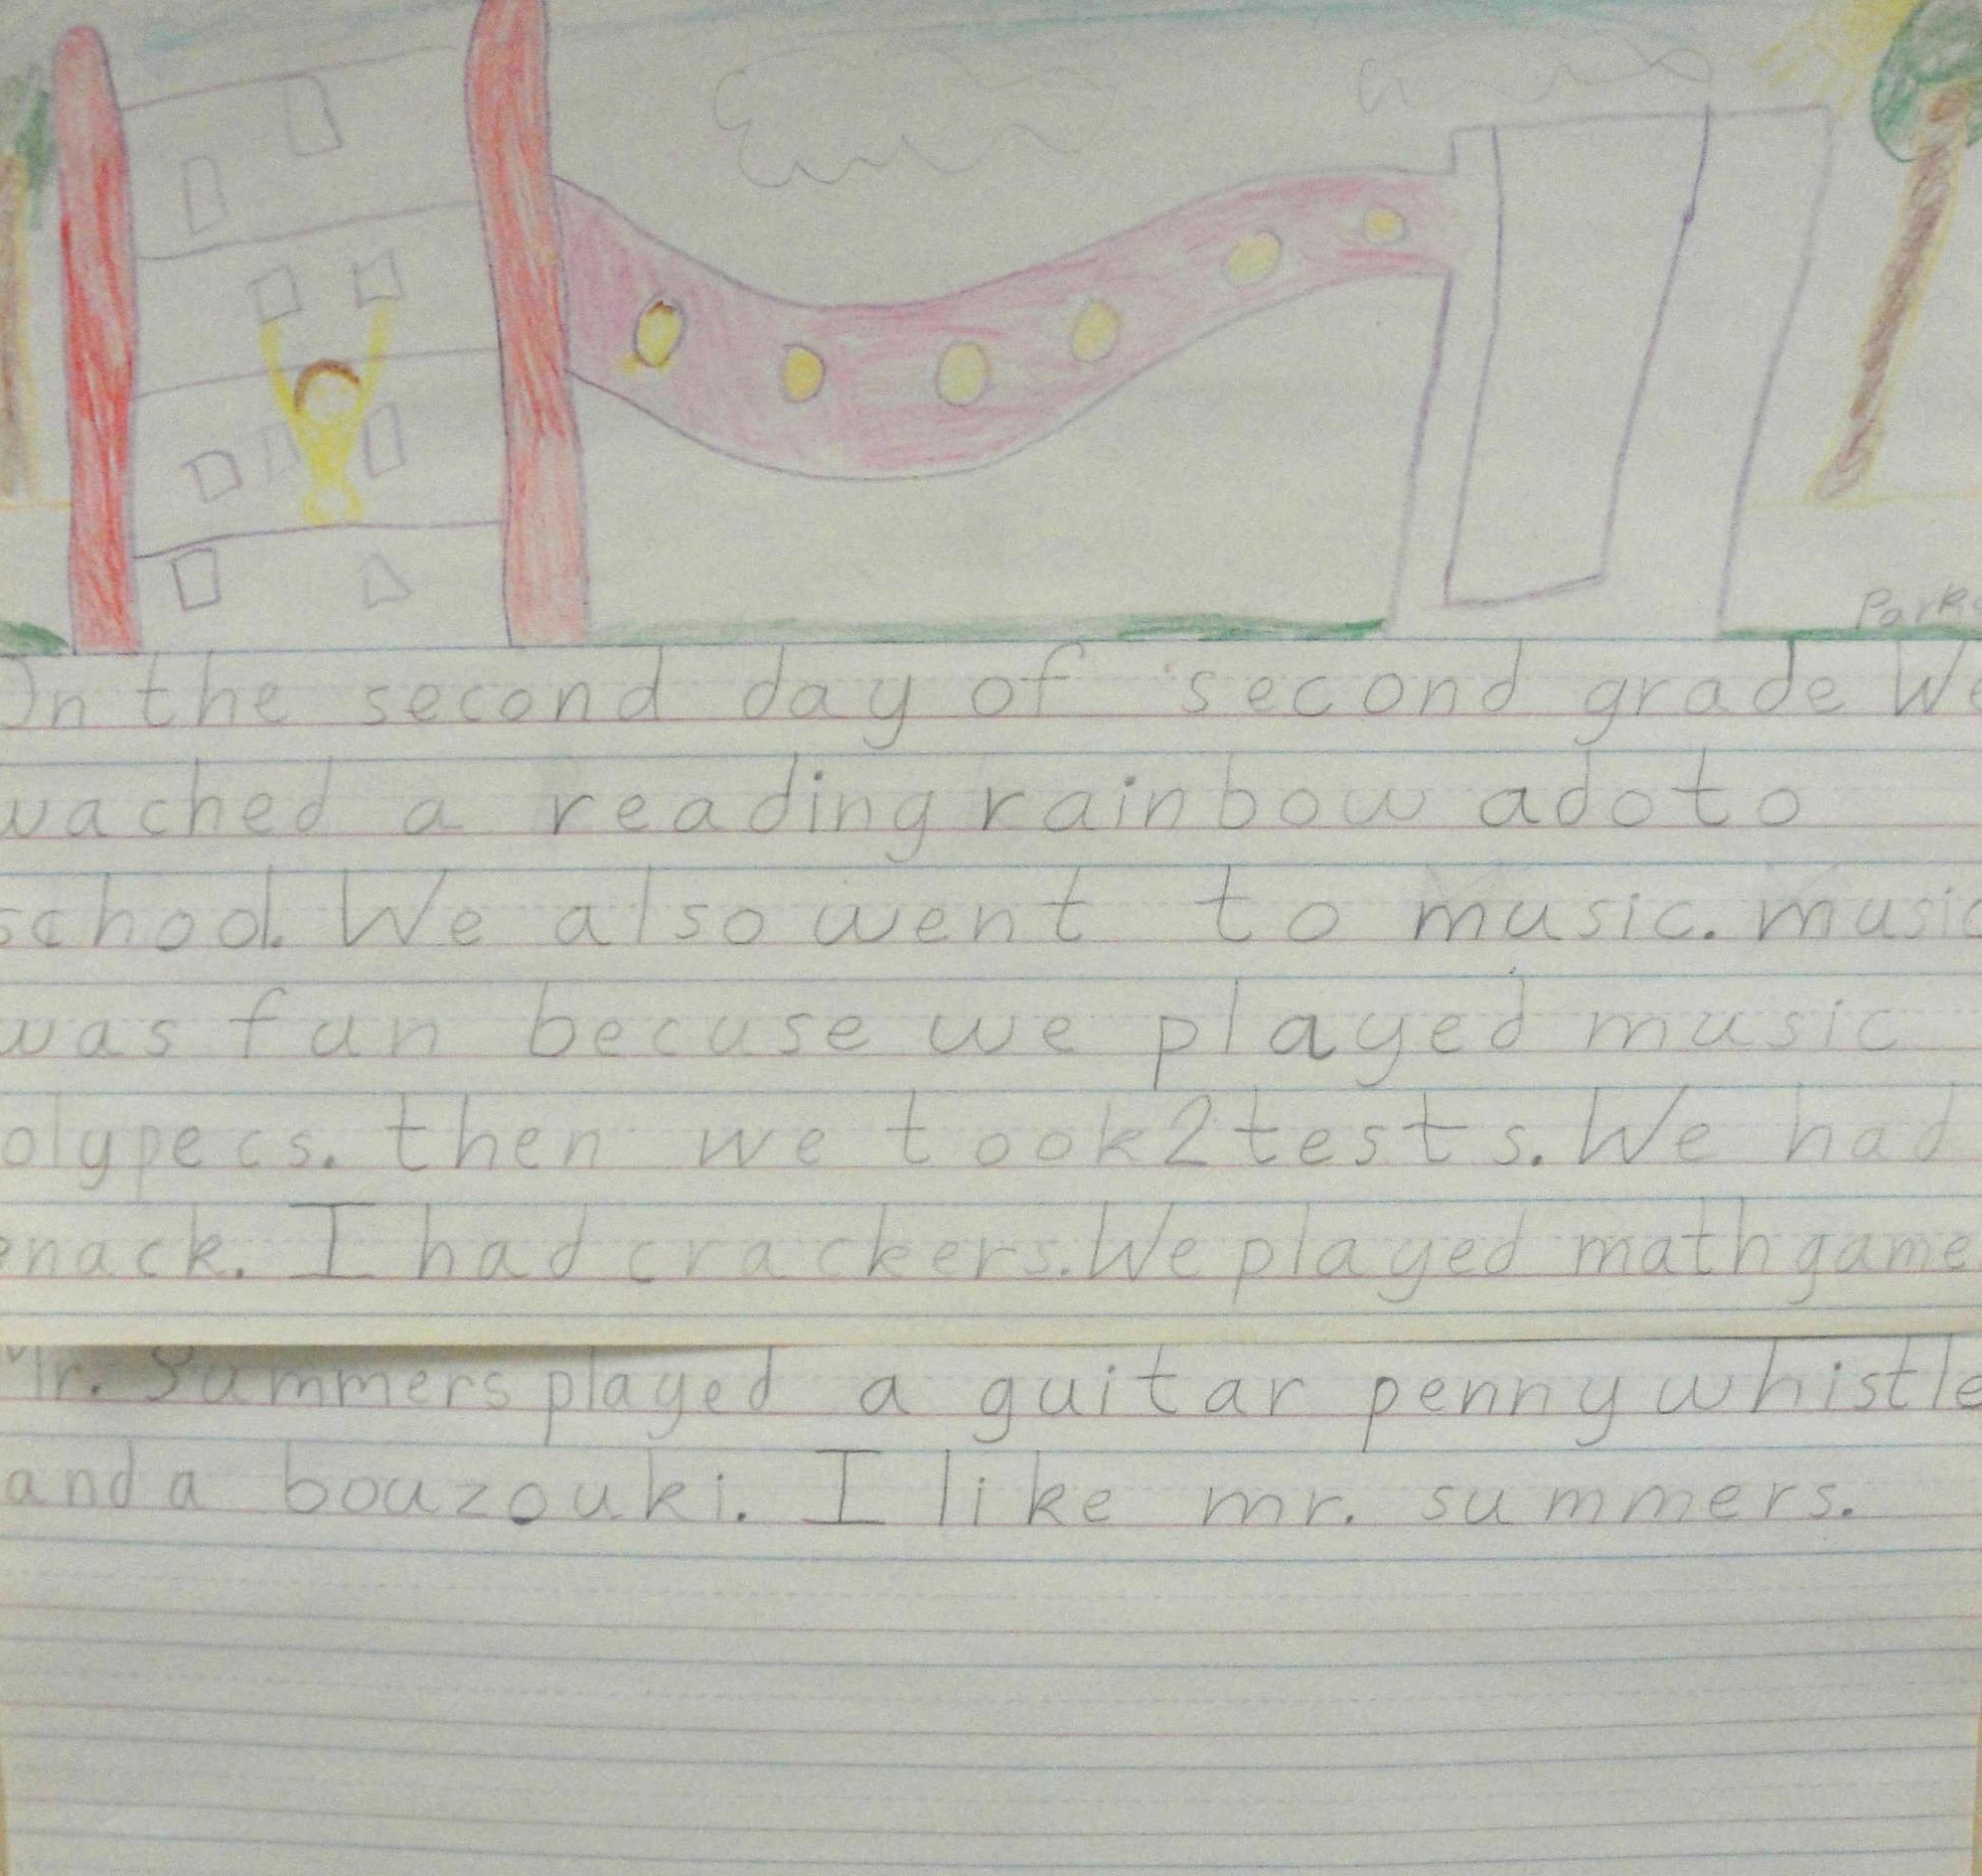 Park
On the second day of second grade We
wached a reading rainbow adoto
school. We also went to music. music
was fun becuse we played music
olypecs. then we took 2 tests. We had
snack. I had crackers. We played math game
Mr. Summers played a guitar penny whistle
and a bouzouki. I like mr. summers.